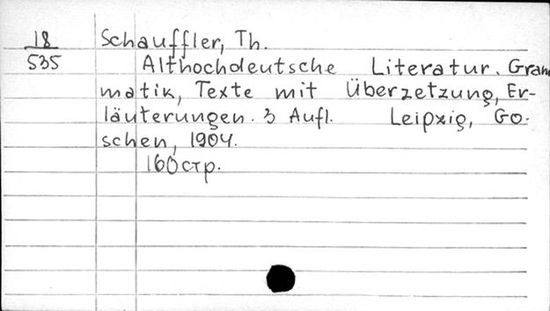 18
535
Schauffler, Th.
Althochdeutsche Literatur. Gram
matik, Texte mit Überzetzung, Er-
läuterungen. 3 Aufl. Leipzig, Go-
schen, 1904.
160 стр.